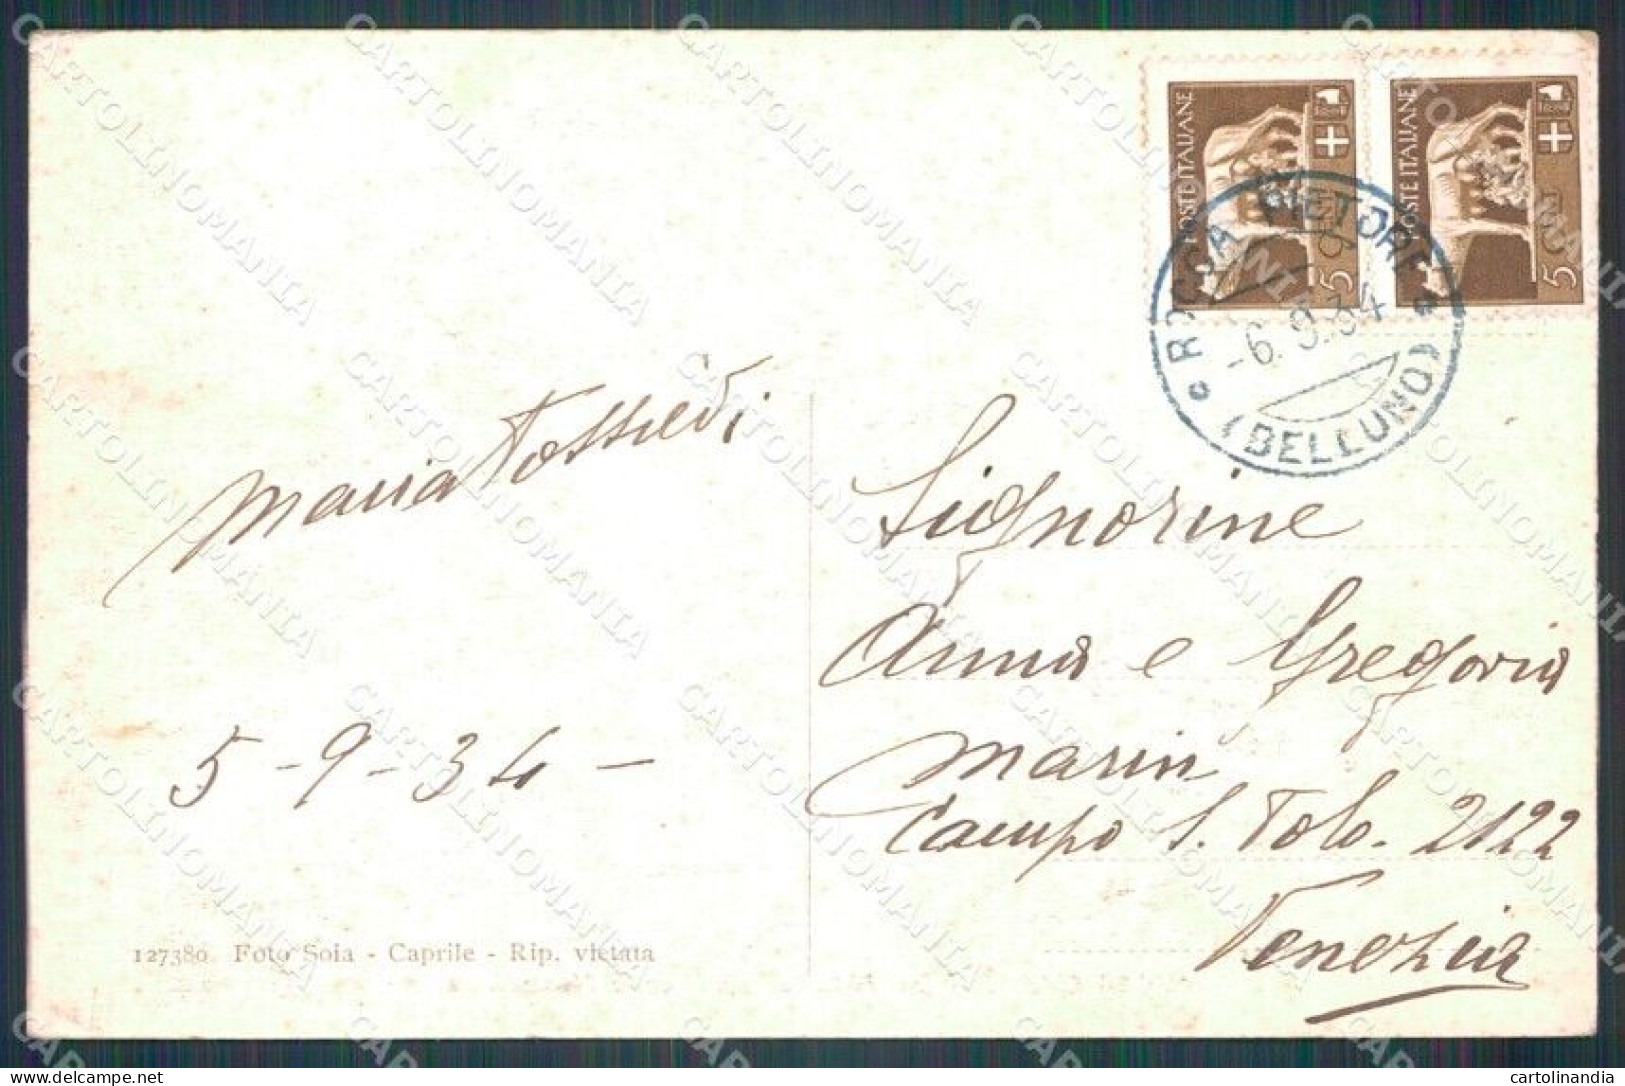 POSTE ITALIANE
5 CENT
POSTE ITALIANE
5 CENT
ROCCA PIETORE
-6.9.34
(BELLUNO)
Maria
5-9-34-
Signorine
Anna e Gregoria
Marin
Campo S. Tolo. 2122
Venezia
127380 Foto Soia - Caprile - Rip. vietata
CARTOLINOMANIA
cartolinandia